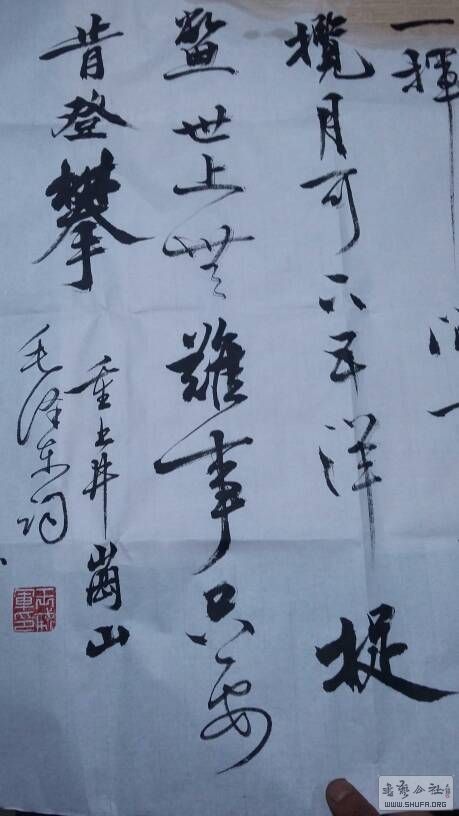 一揮
攬月可下五洋捉
鳖世上無難事只要
肯登攀
重上井崗山
毛泽东词
WWW.SHUFA.ORG